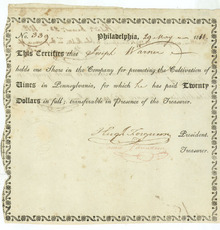 No. 339 Philadelphia, 29 May 18
This Certifies that Joseph Warner
holds one Share in the Company for promoting the Cultivation of
Vines in Pennsylvania, for which he has paid Twenty
Dollars in full; transferable in Presence of the Treasurer.
President.
Treasurer.